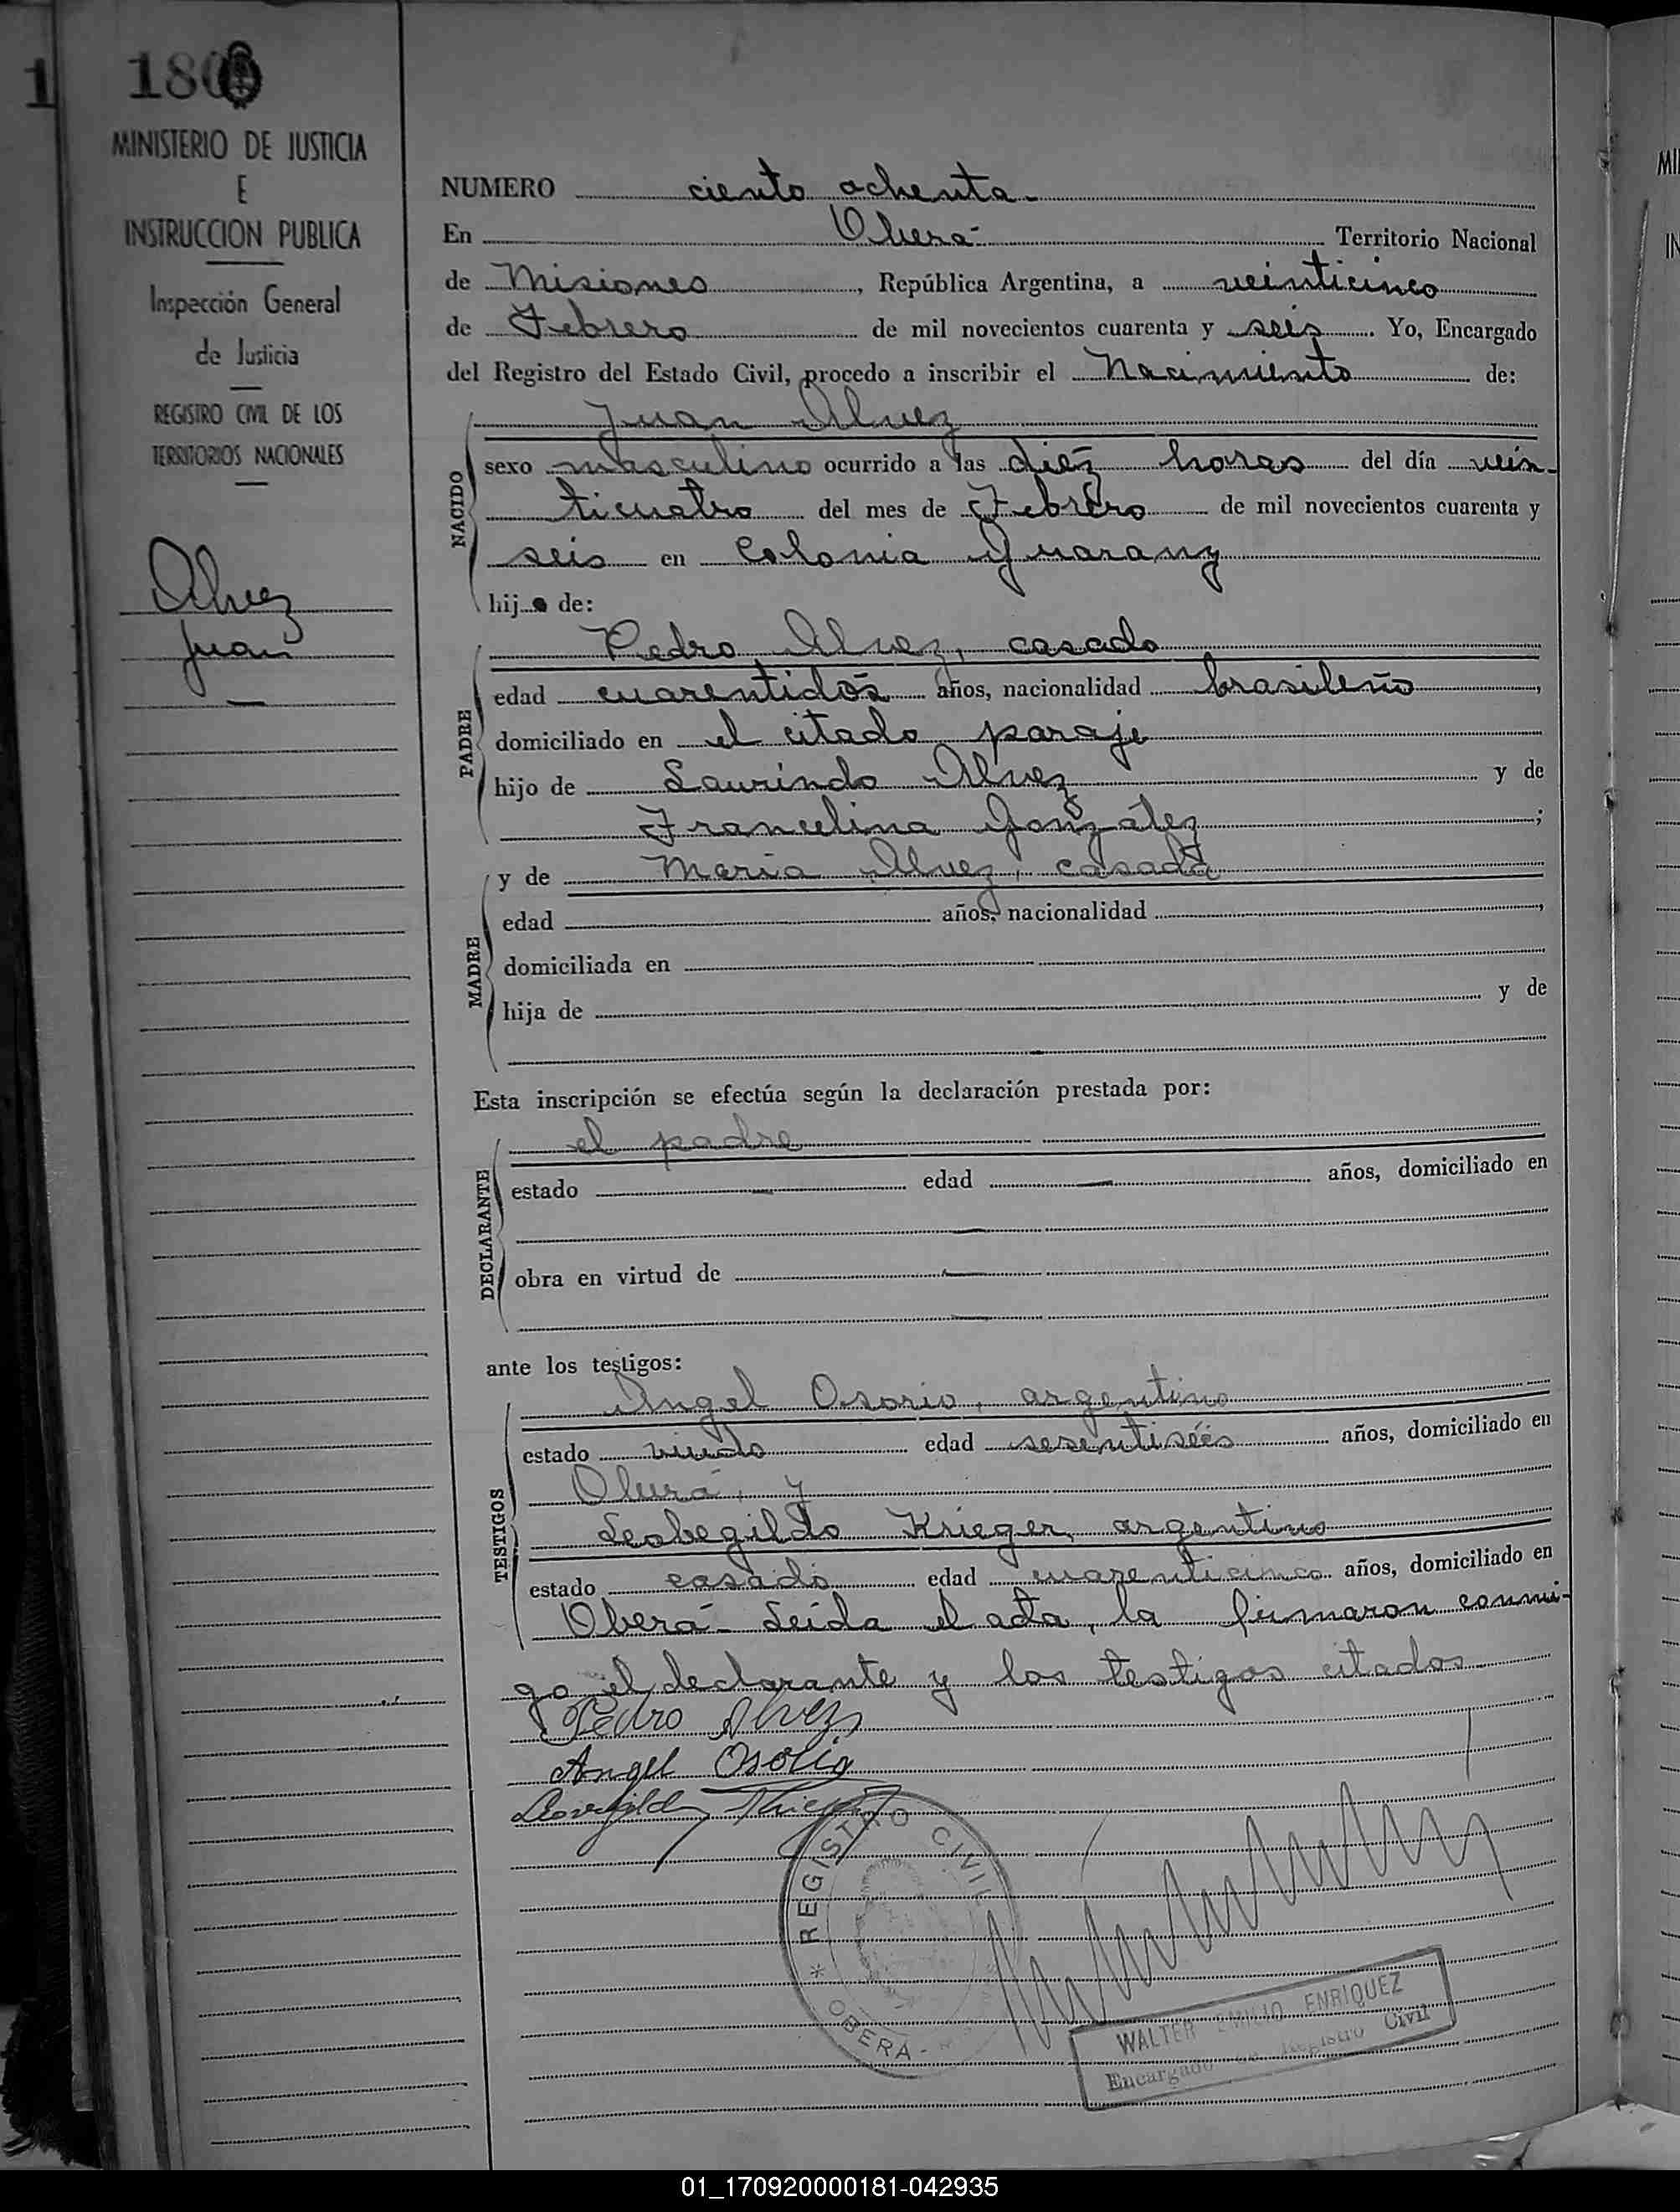 1
180
MINISTERIO DE JUSTICIA
E
INSTRUCCION PUBLICA
Inspección General
de Justicia
REGISTRO CIVIL DE LOS
TERRITORIOS NACIONALES
Alvez
Juan
NUMERO ciento ochenta.
En Oberá Territorio Nacional
de Misiones, República Argentina, a veinticinco
de Febrero de mil novecientos cuarenta y seis. Yo, Encargado
del Registro del Estado Civil, procedo a inscribir el Nacimiento de:
NACIDO
Juan Alvez
sexo masculino ocurrido a las diez horas del día vein-
ticuatro del mes de Febrero de mil novecientos cuarenta y
seis en Colonia Guarany
hijo de:
PADRE
Pedro Alvez, casado
edad cuarentidós años, nacionalidad brasileño,
domiciliado en el citado paraje
hijo de Laurindo Alvez y de
Francelina González;
MADRE
y de Maria Alvez, casada
edad años, nacionalidad ,
domiciliada en
hija de y de
Esta inscripción se efectúa según la declaración prestada por:
DECLARANTE
el padre
estado — edad — años, domiciliado en
—
obra en virtud de —
—
ante los testigos:
TESTIGOS
Angel Osorio, argentino
estado viudo edad sesentiséis años, domiciliado en
Oberá, y
Leobegildo Krieger, argentino
estado casado edad cuarenticinco años, domiciliado en
Oberá- Leida el acta, la firmaron conmi-
go el declarante y los testigos citados
Pedro Alvez
Angel Osorio
REGISTRO CIVIL
* OBERÁ -
WALTER EMILIO ENRIQUEZ
Encargado de Registro Civil
MI
IN
01_170920000181-042935